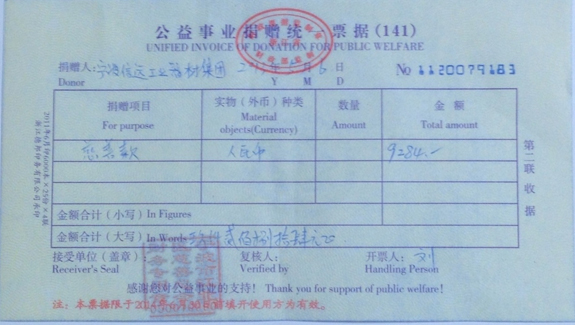 公益事业捐赠统一票据(141)
UNIFIED INVOICE OF DONATION FOR PUBLIC WELFARE
捐赠人: 工业器材集团 年 月 6 日 No 1120079183
Donor Y M D
捐赠项目 实物(外币)种类 数量 金额
For purpose Material objects(Currency) Amount Total amount
慈善款 人民币 9284.-
金额合计(小写)In Figures
金额合计(大写)In Words 玖仟贰佰捌拾肆元正
接受单位(盖章): 复核人: 开票人: 刘
Receiver's Seal Verified by Handling Person
感谢您对公益事业的支持! Thank you for support of public welfare!
注:本票据限于2014年6月30日前填开使用方为有效。
第二联收据
2011年6月印6000本×25份×4联